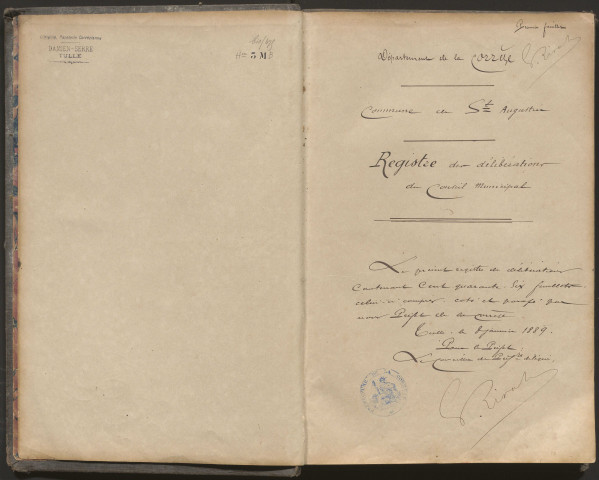 DARIER-SERRE
TULLE
Département de la Corrèze
Commune de St Augustin
Registre des délibérations
du Conseil Municipal
Le présent registre de délibérations
Contenant Cent quarante-six feuillets
celui-ci compris, coté et paraphé par
nous Préfet de la Corrèze
Tulle, le janvier 1889.
Pour le Préfet
Le Conseiller de Préfre